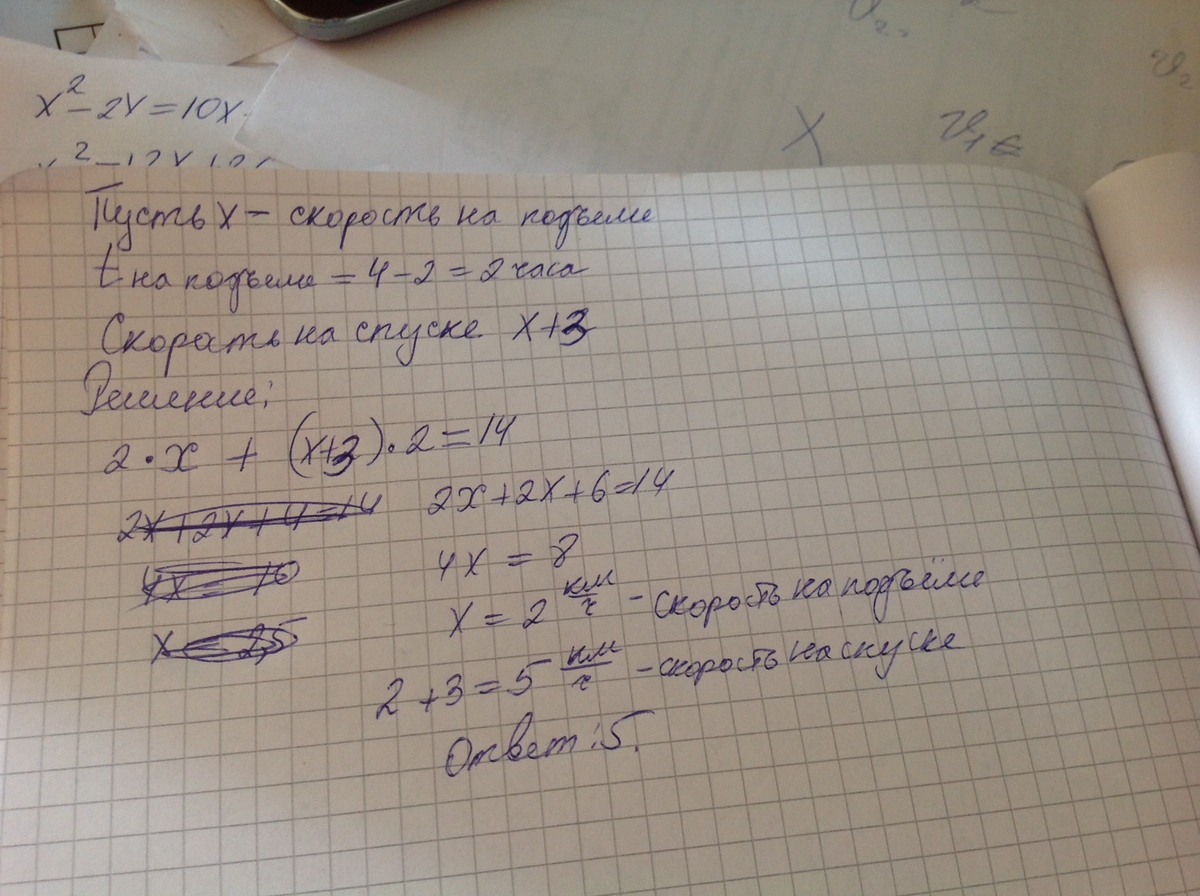 x² - 2x = 10x
x
v₁
v₂
Пусть x - скорость на подъеме
t на подъеме = 4 - 2 = 2 часа
Скорость на спуске x+3
Решение:
2 · x + (x+3) · 2 = 14
2x+2x+4=14 2x+2x+6=14
4x = 10 4x = 8
x = 2,5 x = 2 км/ч - скорость на подъёме
2 + 3 = 5 км/ч - скорость на спуске
Ответ: 5.